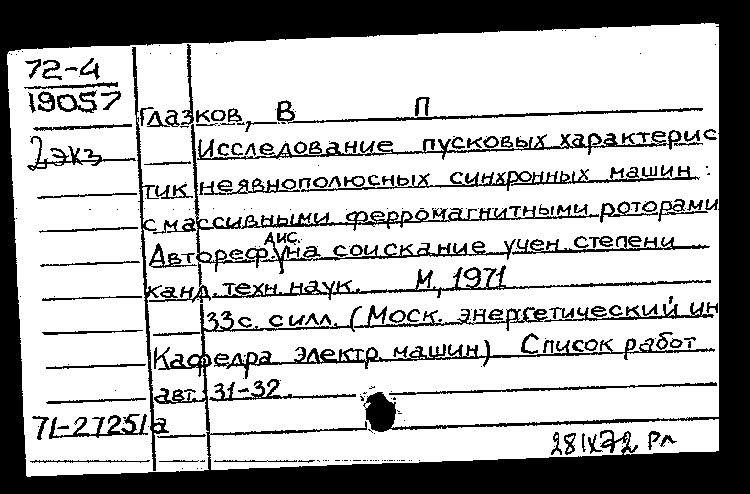 72-4
19057
Глазков, В П
2 экз
Исследование пусковых характерис
тик неявнополюсных синхронных машин
с массивными ферромагнитными роторами
дис.
Автореф. на соискание учен. степени
канд. техн. наук. М., 1971
33 с. с илл. (Моск. энергетический ин
Кафедра электр. машин) Список работ
авт. 31-32.
71-27251а
28 IX 72 Рл